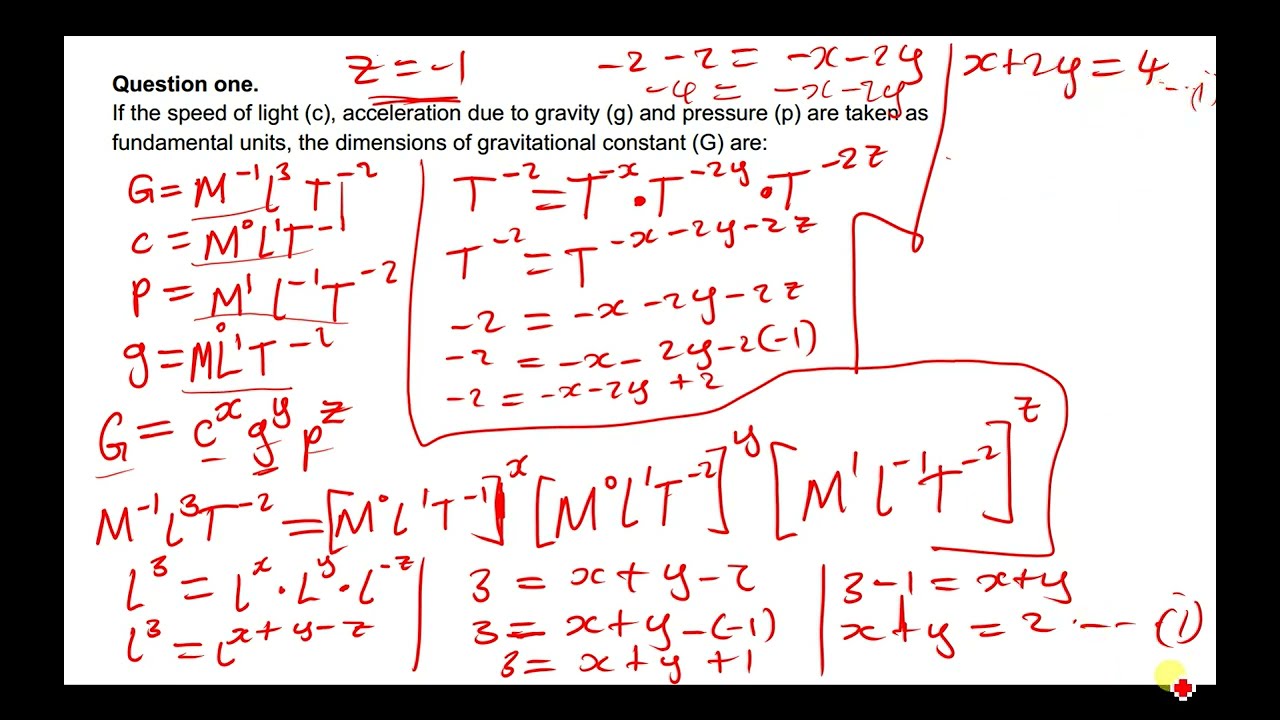 z = -1
-2 - 2 = -x - 2y
-4 = -x - 2y
x + 2y = 4 -- (i)
Question one.
If the speed of light (c), acceleration due to gravity (g) and pressure (p) are taken as
fundamental units, the dimensions of gravitational constant (G) are:
G = M⁻¹ L³ T⁻²
c = M⁰ L¹ T⁻¹
P = M¹ L⁻¹ T⁻²
g = M⁰ L¹ T⁻²
G = c^x g^y p^z
T⁻² = T^-x · T^-2y · T^-2z
T⁻² = T^-x-2y-2z
-2 = -x - 2y - 2z
-2 = -x - 2y - 2(-1)
-2 = -x - 2y + 2
M⁻¹ L³ T⁻² = [M⁰ L¹ T⁻¹]^x [M⁰ L¹ T⁻²]^y [M¹ L⁻¹ T⁻²]^z
L³ = L^x · L^y · L^-z
L³ = L^x+y-z
3 = x + y - z
3 = x + y - (-1)
3 = x + y + 1
3 - 1 = x + y
x + y = 2 --- (i)